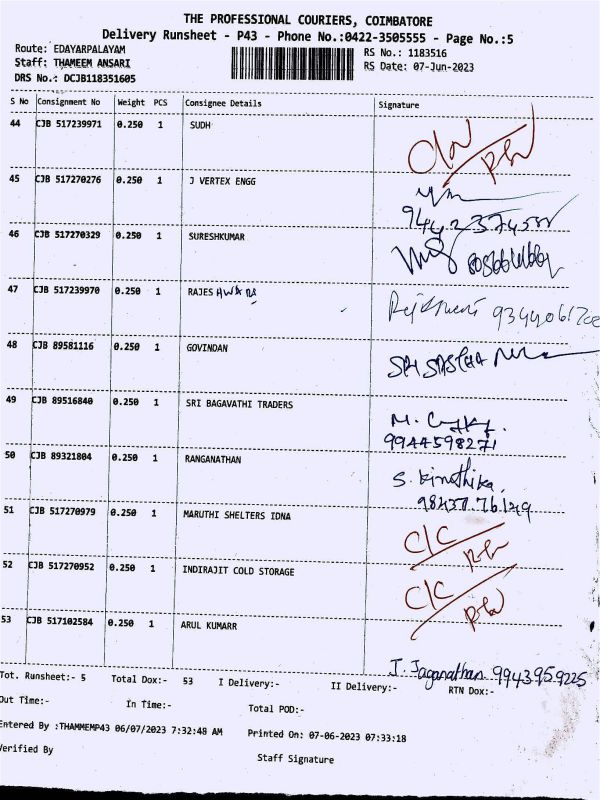 THE PROFESSIONAL COURIERS, COIMBATORE
Delivery Runsheet - P43 - Phone No.:0422-3505555 - Page No.:5
Route: EDAYARPALAYAM
RS No.: 1183516
Staff: THAMEEM ANSARI
RS Date: 07-Jun-2023
DRS No.: DCJB118351605
S No Consignment No Weight PCS Consignee Details Signature
44 CJB 517239971 0.250 1 SUDH
45 CJB 517270276 0.250 1 J VERTEX ENGG
46 CJB 517270329 0.250 1 SURESHKUMAR
47 CJB 517239970 0.250 1 RAJES
48 CJB 89581116 0.250 1 GOVINDAN
SRI SASTHA
49 CJB 89516840 0.250 1 SRI BAGAVATHI TRADERS
9944598271
50 CJB 89321804 0.250 1 RANGANATHAN
S. Kiruthika
98437.76149
51 CJB 517270979 0.250 1 MARUTHI SHELTERS IDNA
C/C
52 CJB 517270952 0.250 1 INDIRAJIT COLD STORAGE
C/C
53 CJB 517102584 0.250 1 ARUL KUMARR
J. Jaganathan 9943959225
Tot. Runsheet:- 5 Total Dox:- 53 I Delivery:- II Delivery:- RTN Dox:-
Out Time:- In Time:- Total POD:-
Entered By :THAMMEMP43 06/07/2023 7:32:48 AM Printed On: 07-06-2023 07:33:18
Verified By Staff Signature